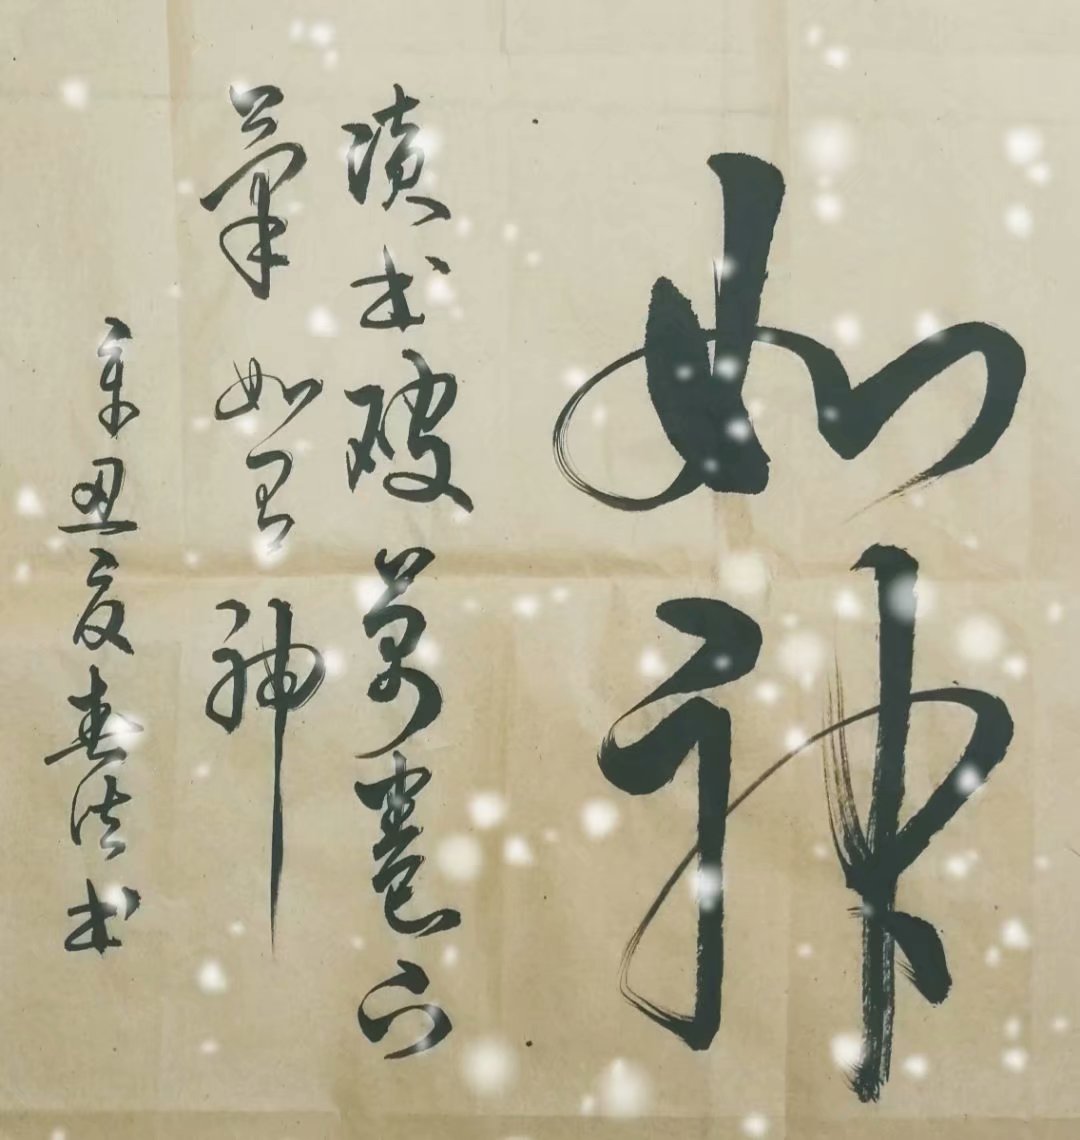 如神
读书破万卷下
笔如有神
辛丑夏春法书